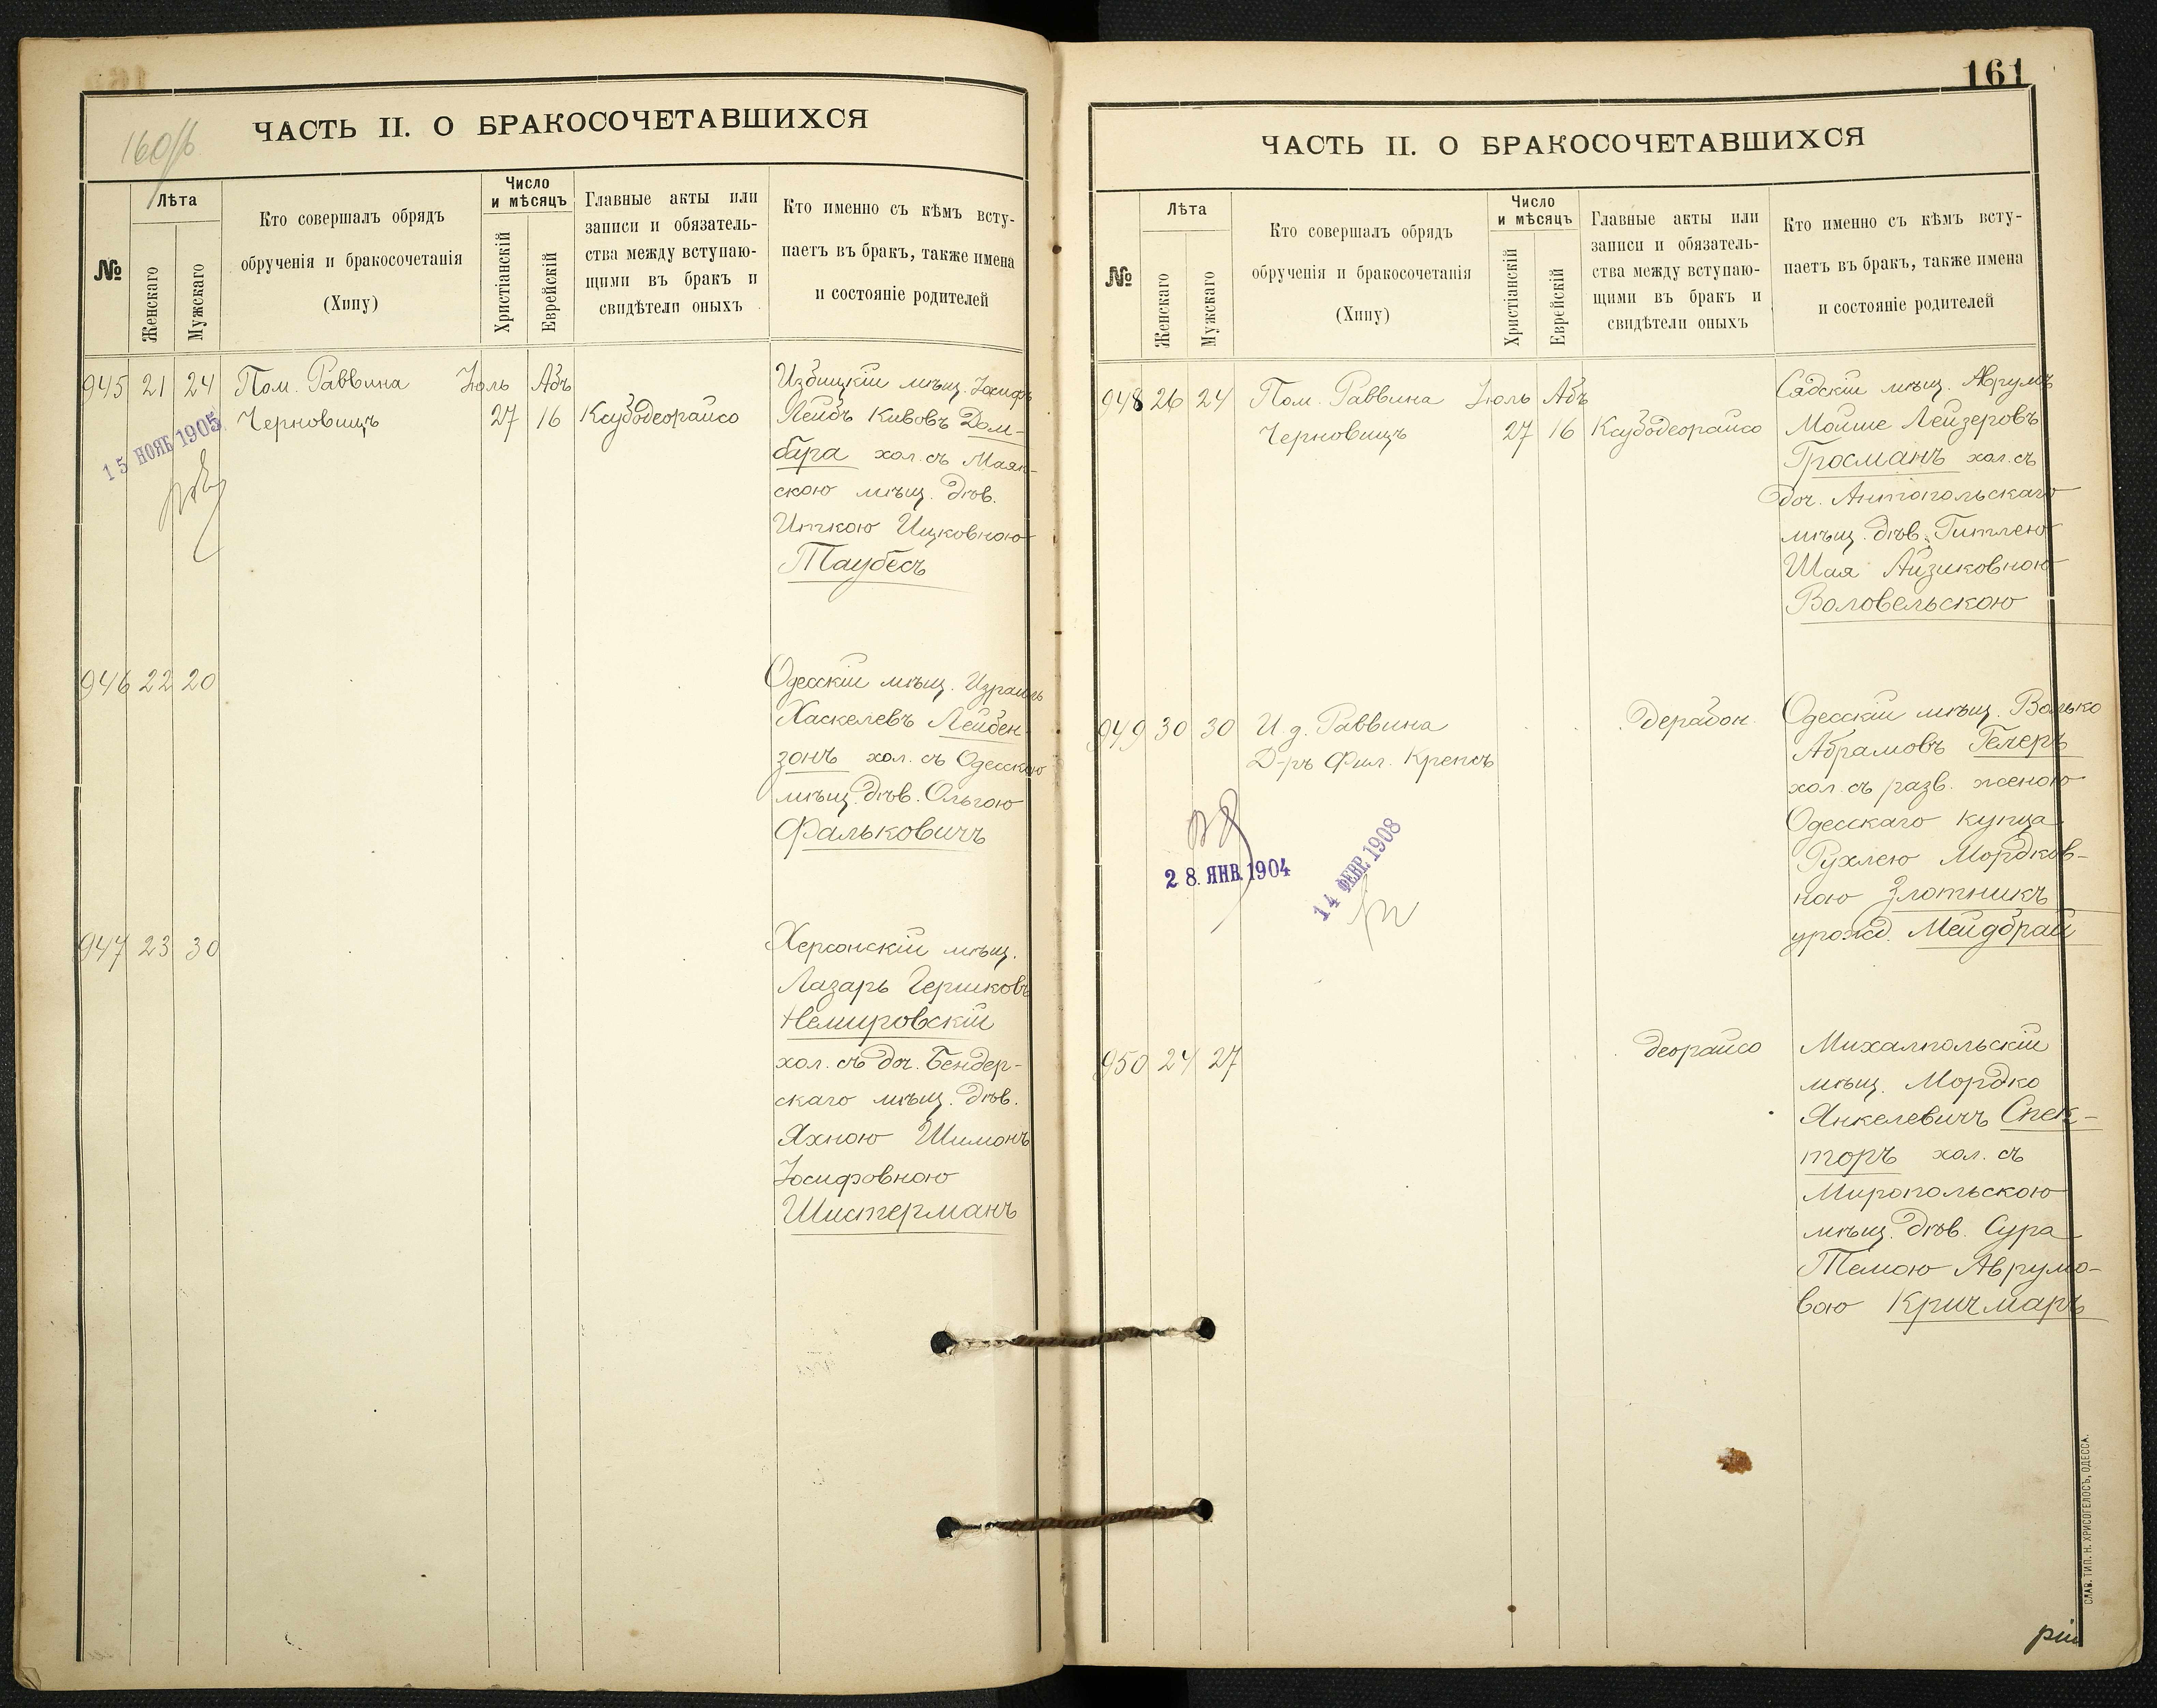 160/б
ЧАСТЬ II. О БРАКОСОЧЕТАВШИХСЯ
№
Лѣта
Женскаго
Мужскаго
Кто совершалъ обрядъ
обрученія и бракосочетанія
(Хипу)
Число
и мѣсяцъ
Христіанскій
Еврейскій
Главные акты или
записи и обязатель-
ства между вступаю-
щими въ бракъ и
свидѣтели оныхъ
Кто именно съ кѣмъ всту-
паетъ въ бракъ, также имена
и состояніе родителей
945 21 24 Пом. Раввина Іюль Абъ Избицкій мѣщ. Іосифъ
Черновицъ 27 16 Ксубодеорайсо Лейбъ Кивовъ Дом-
15 НОЯБ 1905
бара хол. съ Маяк-
скою мѣщ. дѣв.
Иткою Ицковною
Таубесъ
946 22 20 Одесскій мѣщ. Израиль
Хаскелевъ Лейбен-
зонъ хол. съ Одесскою
мѣщ. дѣв. Ольгою
Фальковичъ
947 23 30 Херсонскій мѣщ.
Лазарь Гершковъ
Немировскій
хол. съ доч. Бендер-
скаго мѣщ. дѣв.
Яхною Шимонъ
Іосифовною
Шистерманъ
161
ЧАСТЬ II. О БРАКОСОЧЕТАВШИХСЯ
№
Лѣта
Женскаго
Мужскаго
Кто совершалъ обрядъ
обрученія и бракосочетанія
(Хипу)
Число
и мѣсяцъ
Христіанскій
Еврейскій
Главные акты или
записи и обязатель-
ства между вступаю-
щими въ бракъ и
свидѣтели оныхъ
Кто именно съ кѣмъ всту-
паетъ въ бракъ, также имена
и состояніе родителей
948 26 24 Пом. Раввина Іюль Абъ Садскій мѣщ. Аврумъ
Черновицъ 27 16 Ксубодеорайсо Мойше Лейзеровъ
Гросманъ хол. съ
доч. Антопольскаго
мѣщ. дѣв. Гитлею
Шая Айзиковною
Воловельскою
949 30 30 И. д. Раввина дерабон. Одесскій мѣщ. Волько
Д-ръ Фил. Крепсъ Абрамовъ Гелеръ
хол. съ разв. женою
Одесскаго купца
28 ЯНВ. 1904
14 ФЕВР. 1908
Рухлею Мордков-
ною Злотникъ
урожд. Мейдбрай
950 24 27 деорайсо Михалпольскій
мѣщ. Мордко
Янкелевичъ Спек-
торъ хол. съ
Миропольскою
мѣщ. дѣв. Сура
Темою Аврумо-
вою Кричмаръ
СЛАВ. ТИП. Н. ХРИСОГЕЛОСЪ, ОДЕССА.
рій